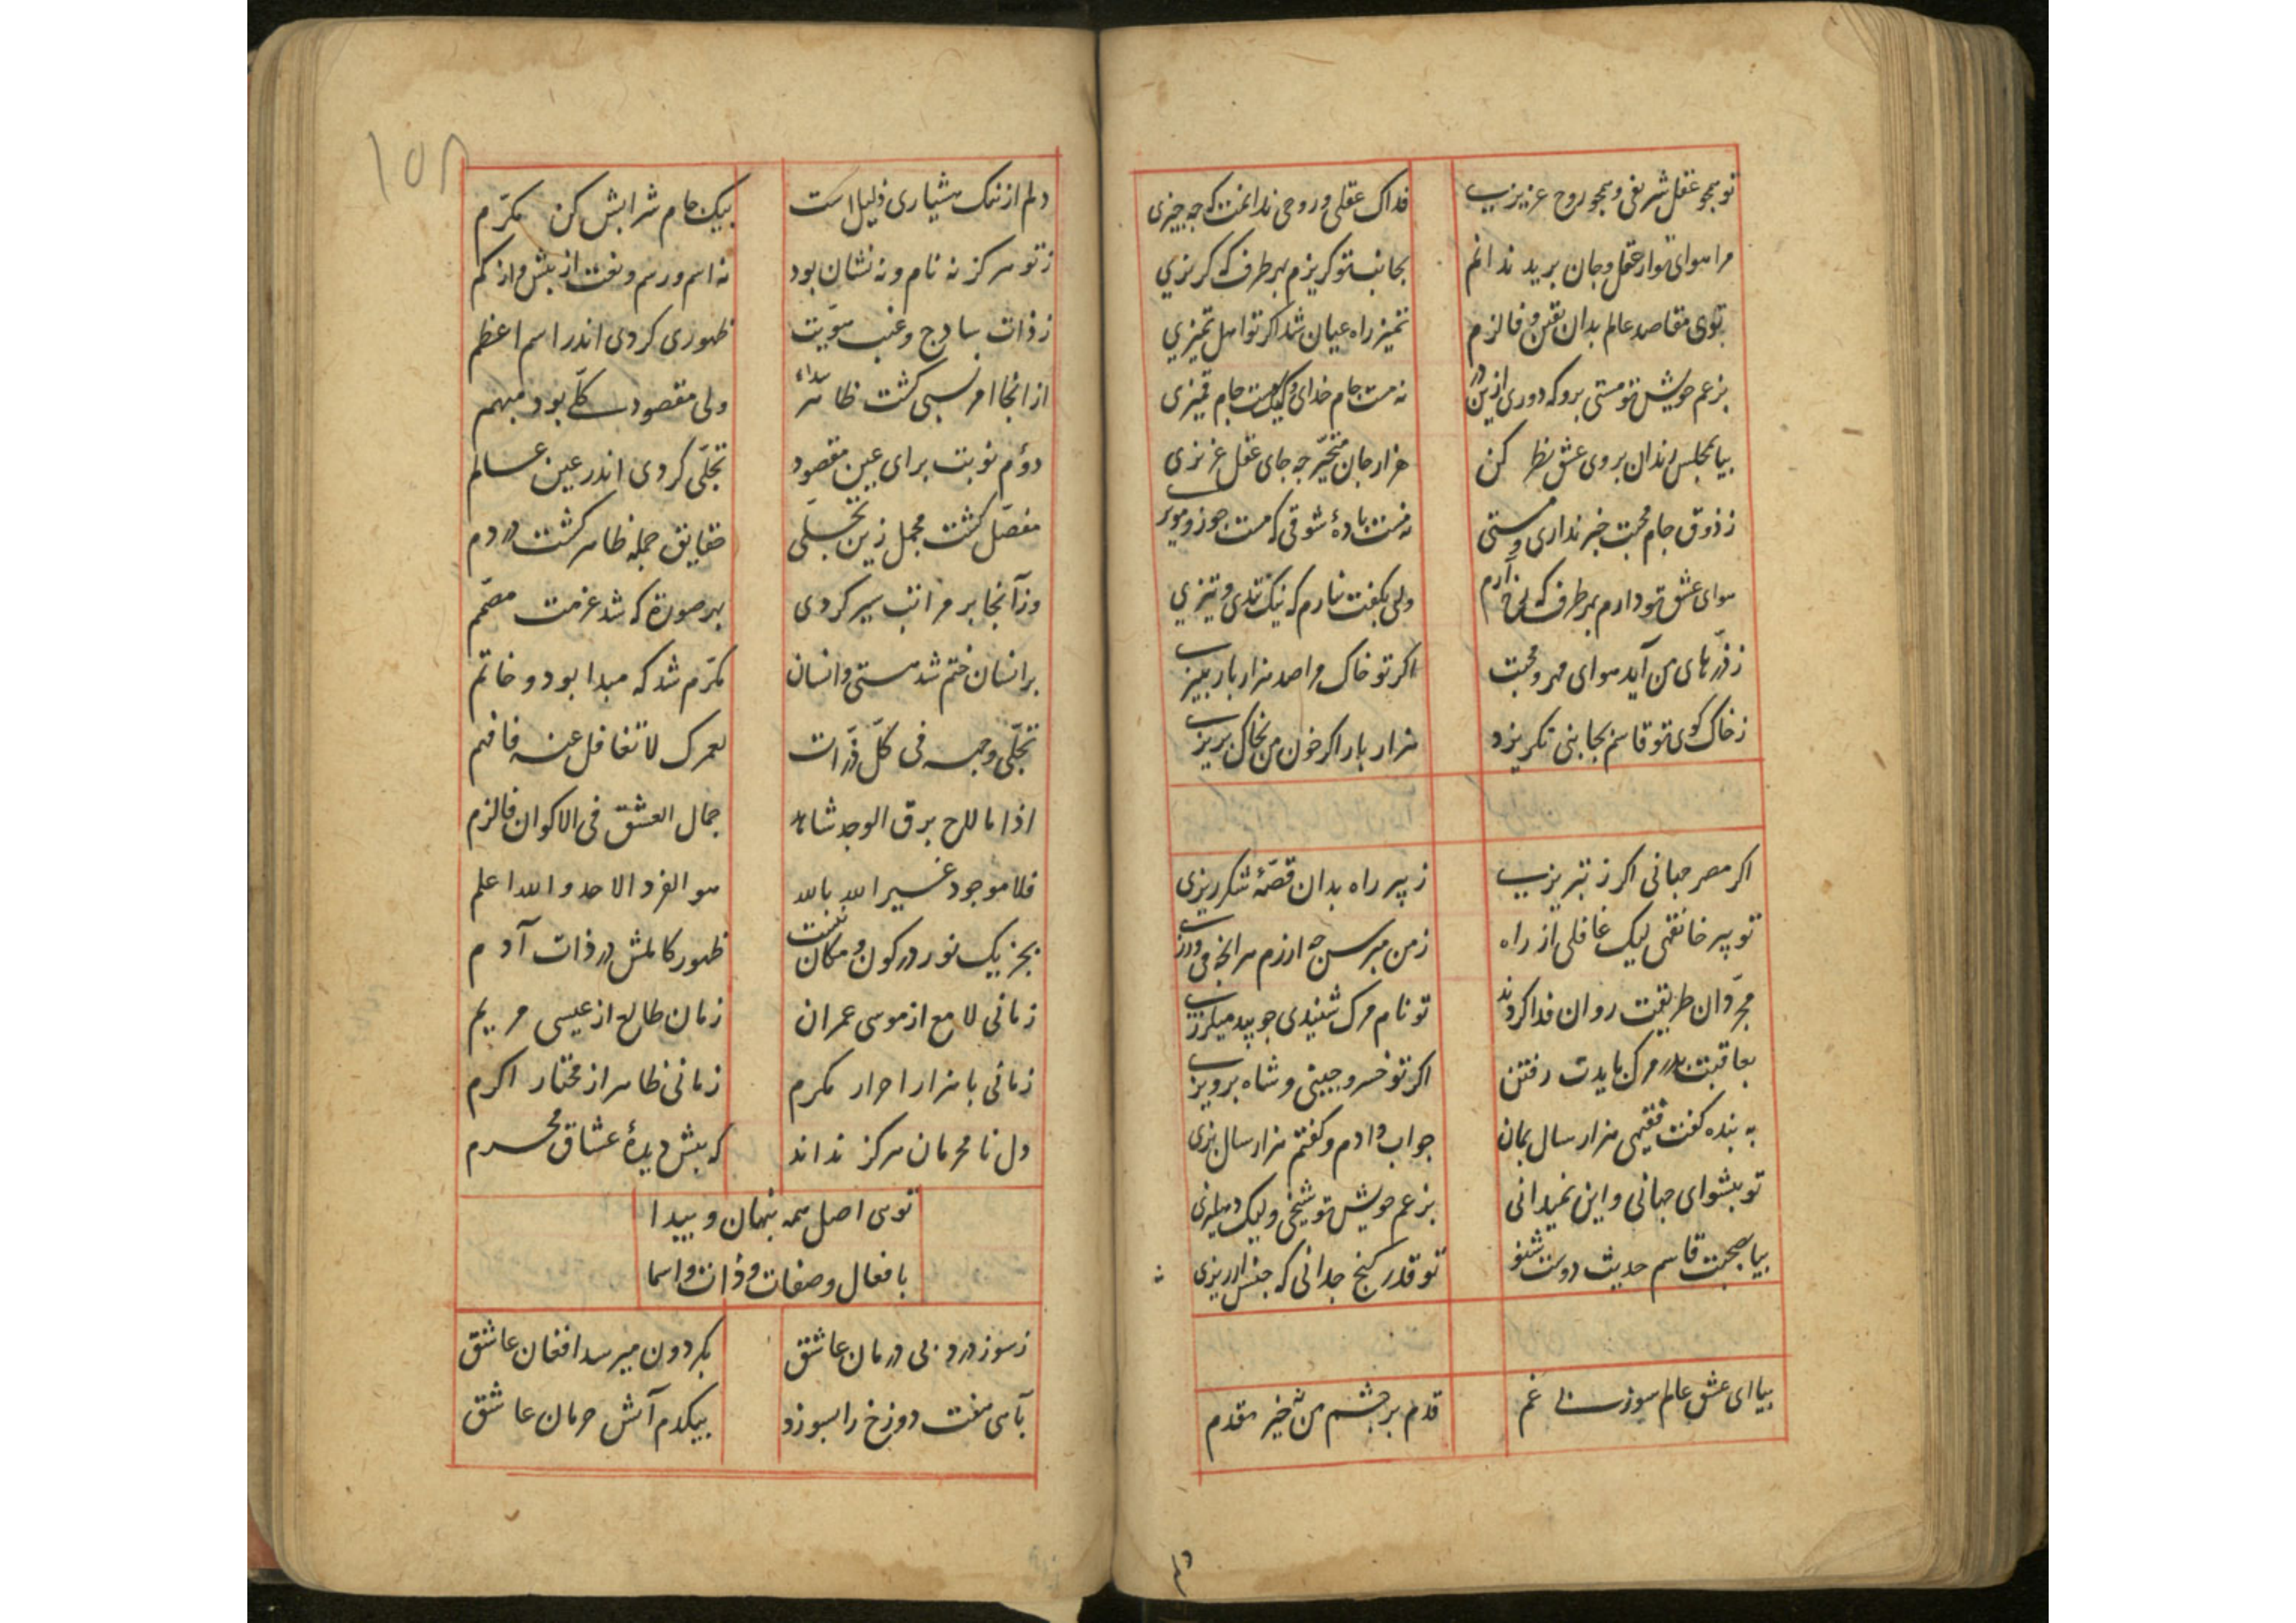 تو همچو عقل شریفی و همچو روح عزیزی فداک عقلی و روحی ندانمت که چه چیزی
مرا هوای تو از عقل و جان برید ندانم بجانب تو کریزم بهر طرف که کریزی
توی مقاصد عالم بدان تیقن و فالزم تمیز راه عیان شد اکر تو اهل تمیزی
بزعم خویش تو مستی برو که دوری ازین در نه مست جام خدای و لیک مست جام قمیزی
بیا بمجلس رندان بروی عشق نظر کن هزار جان متحیر چه جای عقل غریزی
ز ذوق جام محبت خبر نداری و مستی نه مست باده شوقی که مست جوز و مویزی
هوای عشق تو دارم بهر طرف که خرامم ولی بکفت نیارم که نیک تندی و تیزی
ز ذرهای من آید هوای مهر و محبت اکر تو خاک مرا صد هزار بار ببیزی
ز خاک کوی تو قاسم بجانبی نکریزد هزار بار اکر خون من بخاک بریزی
اکر ز مصر جهانی اکر ز تبریزی ز پیر راه بدان قصهٔ شکرریزی
تو پیر خانقهی لیک غافلی از راه ز من مپرس چه ارزم هر آنچه می‌ورزی
مجردان طریقت روان فدا کردند تو نام مرک شنیدی چو بید میلرزی
بعاقبت بدر مرک بایدت رفتن اکر تو خسرو چینی و شاه پرویزی
به بنده کفت فقیهی هزار سال بمان جواب دادم و کفتم هزار سال بزی
تو پیشوای جهانی و این نمیدانی بزعم خویش تو شیخی و لیک دهلیزی
بیا بصحبت قاسم حدیث دوست شنو تو قدر کنج چه دانی که جنس ارزیزی
بیا ای عشق عالم سوز بی غم قدم بر چشم من نه خیر مقدم
۱۵۸
دلم از ننک هشیاری ذلیل است بیک جام شرابش کن مکرّم
ز تو هرکز نه نام و نه نشان بود نه اسم و رسم و نعت از بیش و از کم
ز ذات ساذج و غیب هویّت ظهوری کردی اندر اسم اعظم
از انجا امر نسبی کشت ظاهر ولی مقصود کلّی بود مبهم
دوم نوبت برای عین مقصود تجلّی کردی اندر عین عالم
مفصّل کشت مجمل زین تجلّی حقایق جمله ظاهر کشت در دم
وز آنجا بر مراتب سیر کردی بهر صورة که شد عزمت مصمّم
بر انسان ختم شد هستی و انسان مکرّم شد که مبدا بود و خاتم
تجلّی وجهه فی کلّ ذرّات لعمرک لا تغافل عنه فافهم
اذا ما لاح برق الوجد شاهد جمال العشق فی الاکوان فالزم
فلا موجود غیر الله بالله هو الفرد الاحد والله اعلم
بجز یک نور در کون و مکان نیست ظهور کاملش در ذات آدم
زمانی لامع از موسی عمران زمان طالع از عیسی مریم
زمانی با هزار احرار مکرم زمانی ظاهر از مختار اکرم
دل نامحرمان هرکز نداند که بیش دیدهٔ عشاق محرم
توی اصل همه پنهان و پیدا
بافعال و صفات و ذات و اسما
ز سوز درد بی درمان عاشق بکردون میرسد افغان عاشق
بآهی هفت دوزخ را بسوزد بیکدم آتش حرمان عاشق